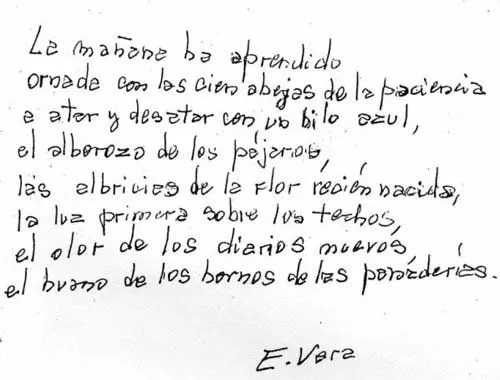 La mañana ha aprendido
ornada con las cien abejas de la paciencia
a atar y desatar con un hilo azul,
el alborozo de los pájaros,
las albricias de la flor recién nacida,
la luz primera sobre los techos,
el olor de los diarios nuevos,
el humo de los hornos de las panaderías.
E. Vera